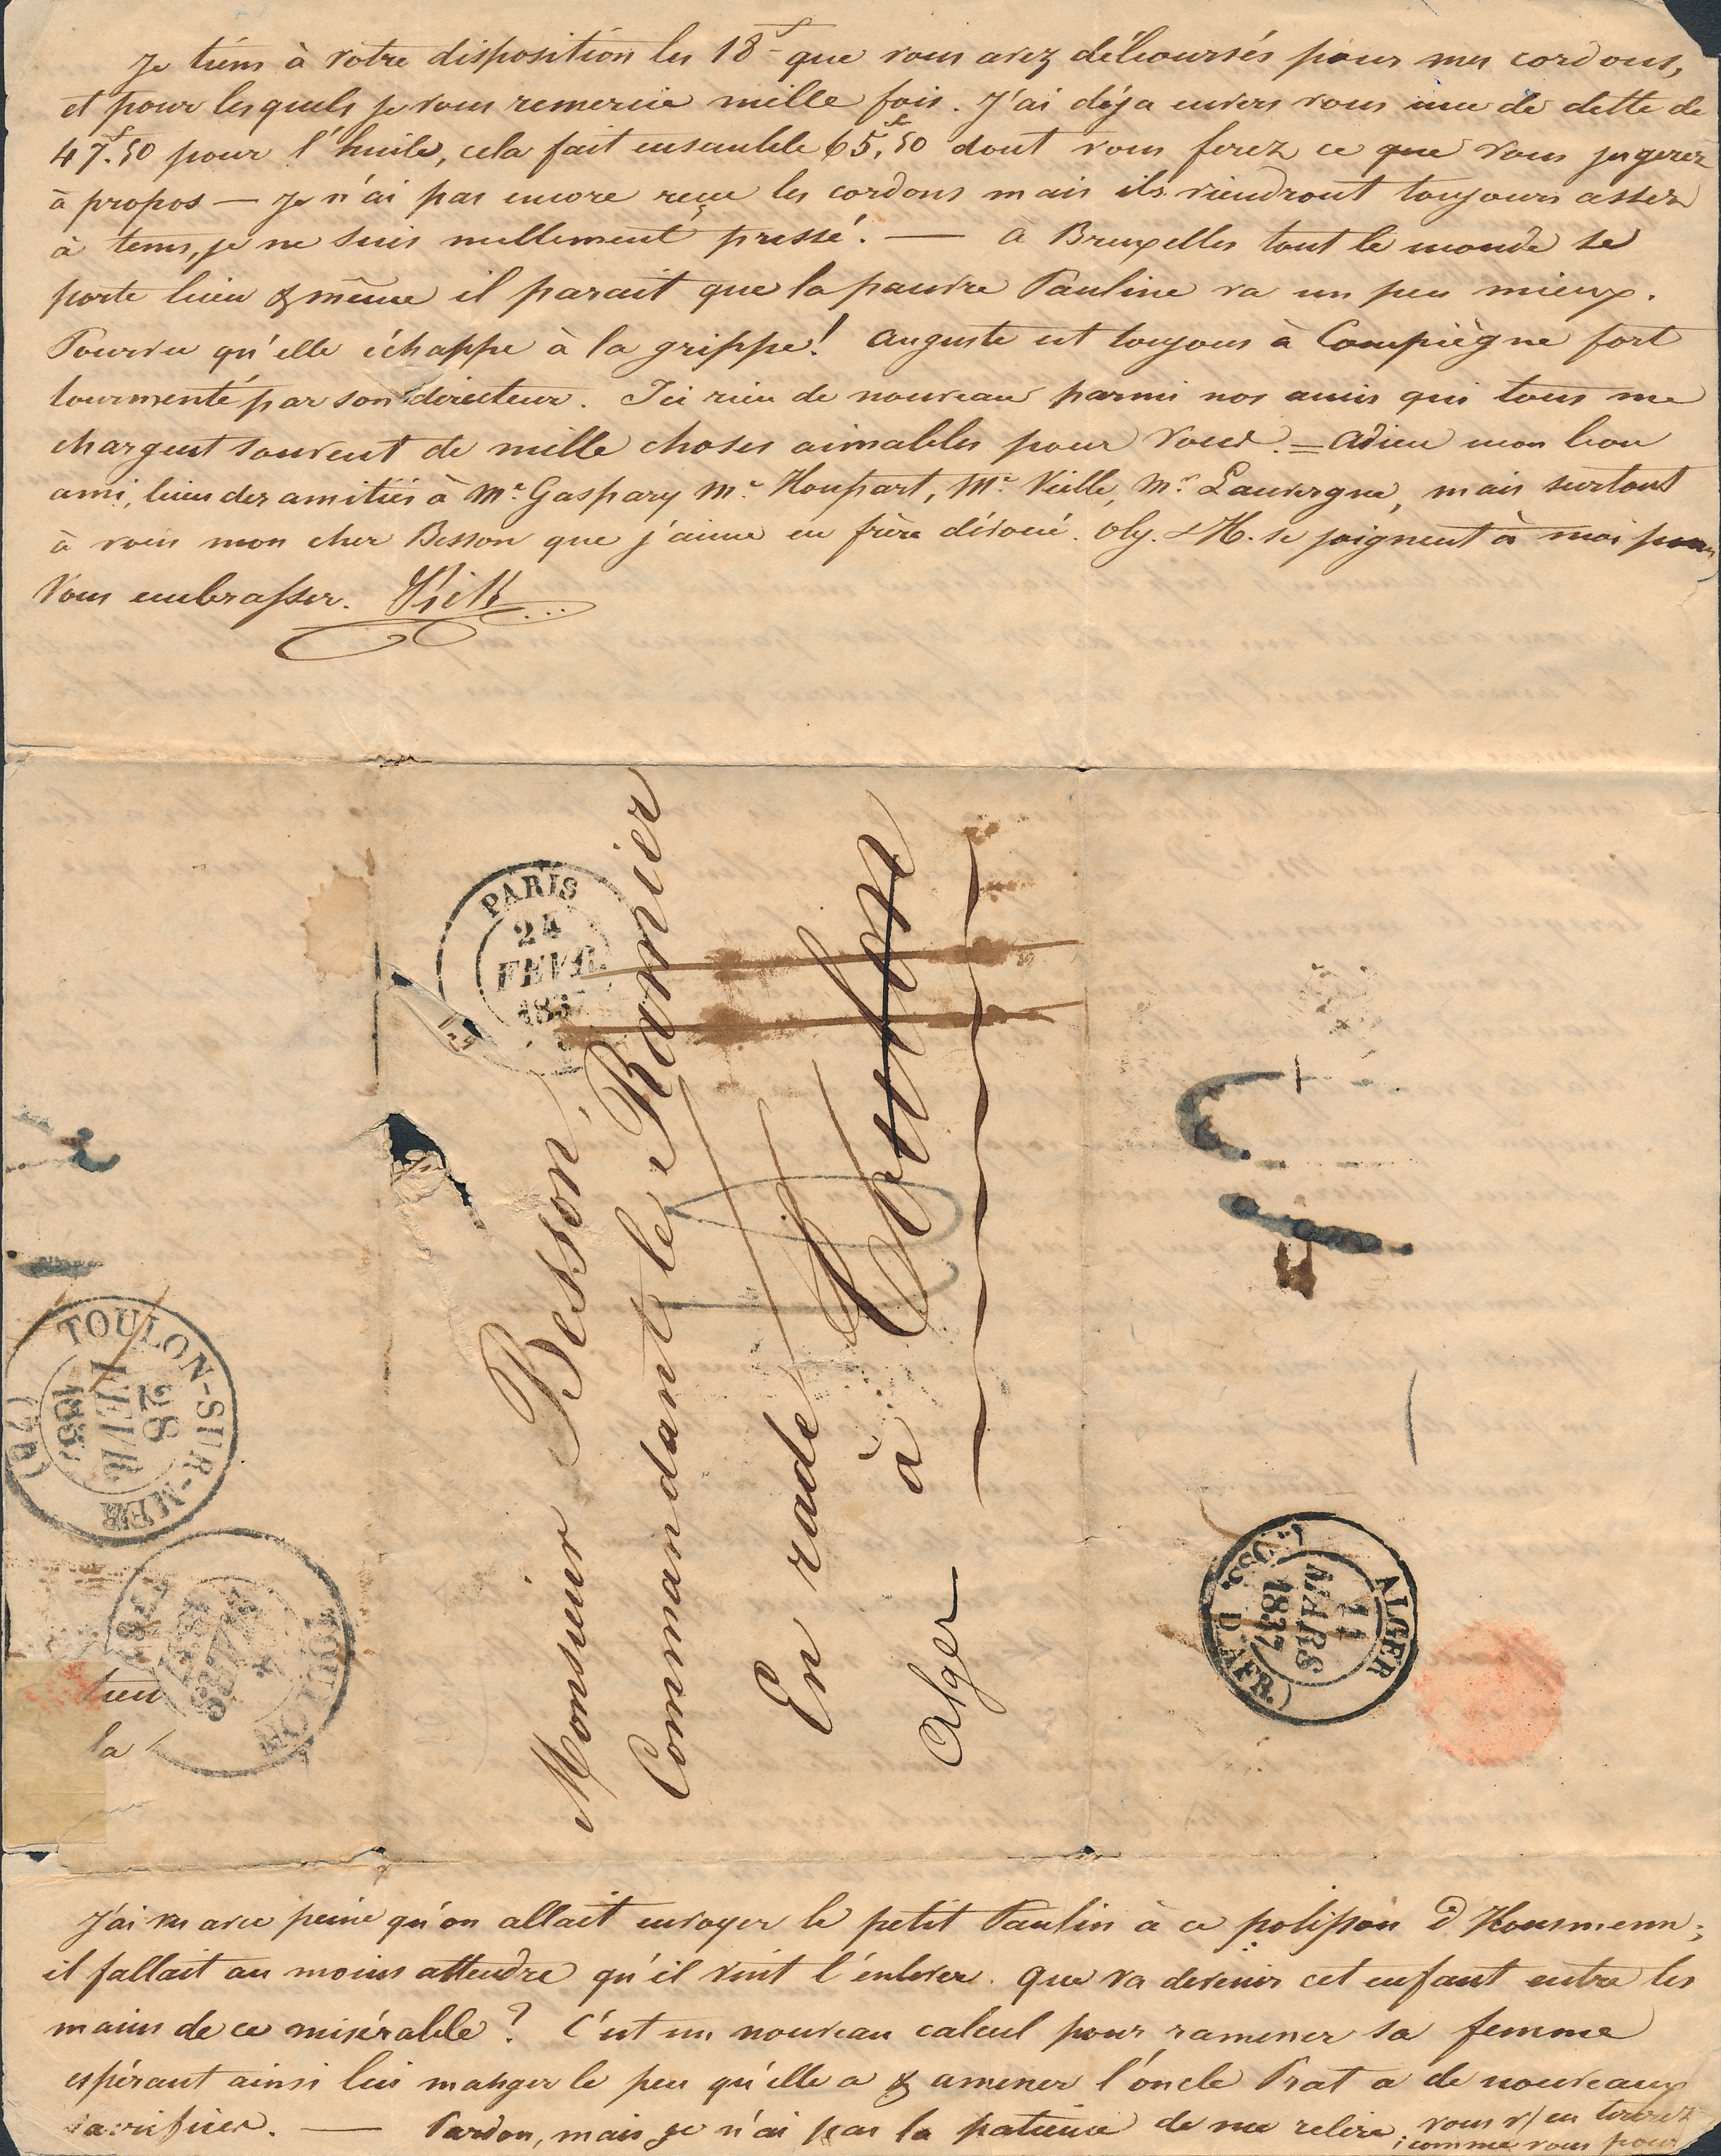 Je tiens à votre disposition les 18f que vous avez déboursés pour mes cordons,
et pour lesquels je vous remercie mille fois. J'ai déja envers vous une de dette de
47f.50 pour l'huile, cela fait ensemble 65f.50 dont vous ferez ce que vous jugerez
à propos — je n'ai pas encore reçu les cordons mais ils viendront toujours assez
à tems, je ne suis nullement pressé. — a Bruxelles tout le monde se
porte bien & même il parait que la pauvre Pauline va un peu mieux.
Pourvu qu'elle échappe à la grippe! Auguste est toujous à Compiègne fort
tourmenté par son directeur. Ici rien de nouveau parmi nos amis qui tous me
chargent souvent de mille choses aimables pour vous. = Adieu mon bon
ami, bien des amitiés à Mr. Gaspary Mr. Houpart, Mr. Vielle, Mr. Lauvergne, mais surtout
à vous mon cher Besson que j'aime en frère dévoué. Oly. & H. se joignent à moi pour
vous embrasser.
PARIS
24
FEVR.
1837
Monsieur Besson,
Commandant le Ramier
En rade
à Toulon
Alger
TOULON-SUR-MER
28
FEVR.
1837
(78)
TOULON
MARS
1837
ALGER
11
MARS
1837
POSS. D'AFR.
tien
la
J'ai vu avec peine qu'on allait envoyer le petit Paulin à ce polisson d'Housmenn;
il fallait au moins attendre qu'il vint l'enlever. Que va devenir cet enfant entre les
mains de ce misérable? C'est un nouveau calcul pour ramener sa femme
espérant ainsi lui manger le peu qu'elle a & amener l'oncle Prat a de nouveaux
sacrifices. — Pardon, mais je n'ai pas la patience de me relire; vous v/ en tirerez
comme vous pour